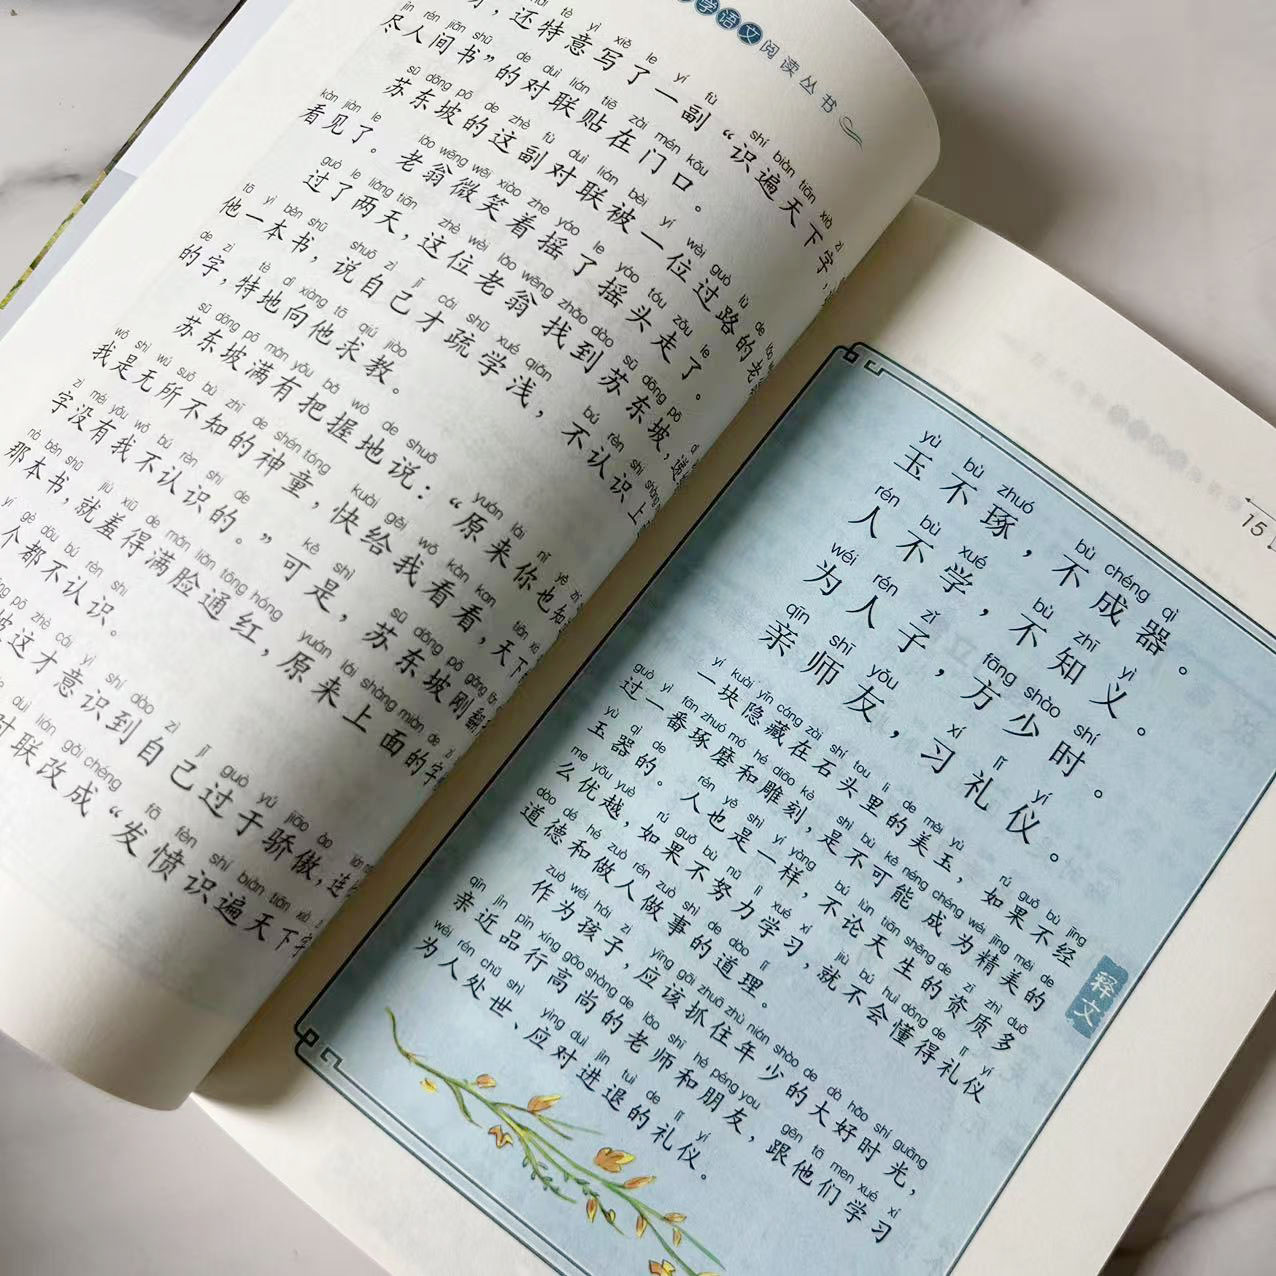 学语文阅读丛书
,还特意写了一副“识遍天下字,
尽人间书”的对联贴在门口。
苏东坡的这副对联被一位过路的老
看见了。老翁微笑着摇了摇头走了。
过了两天,这位老翁找到苏东坡,递
他一本书,说自己才疏学浅,不认识上
的字,特地向他求教。
苏东坡满有把握地说:“原来你也知
我是无所不知的神童,快给我看看,天下
字没有我不认识的。”可是,苏东坡刚翻
那本书,就羞得满脸通红,原来上面的字
个都不认识。
坡这才意识到自己过于骄傲,连
对联改成“发愤识遍天下字
15
玉不琢,不成器。
人不学,不知义。
为人子,方少时。
亲师友,习礼仪。
释文
一块隐藏在石头里的美玉,如果不经
过一番琢磨和雕刻,是不可能成为精美的
玉器的。人也是一样,不论天生的资质多
么优越,如果不努力学习,就不会懂得礼仪
道德和做人做事的道理。
作为孩子,应该抓住年少的大好时光,
亲近品行高尚的老师和朋友,跟他们学习
为人处世、应对进退的礼仪。